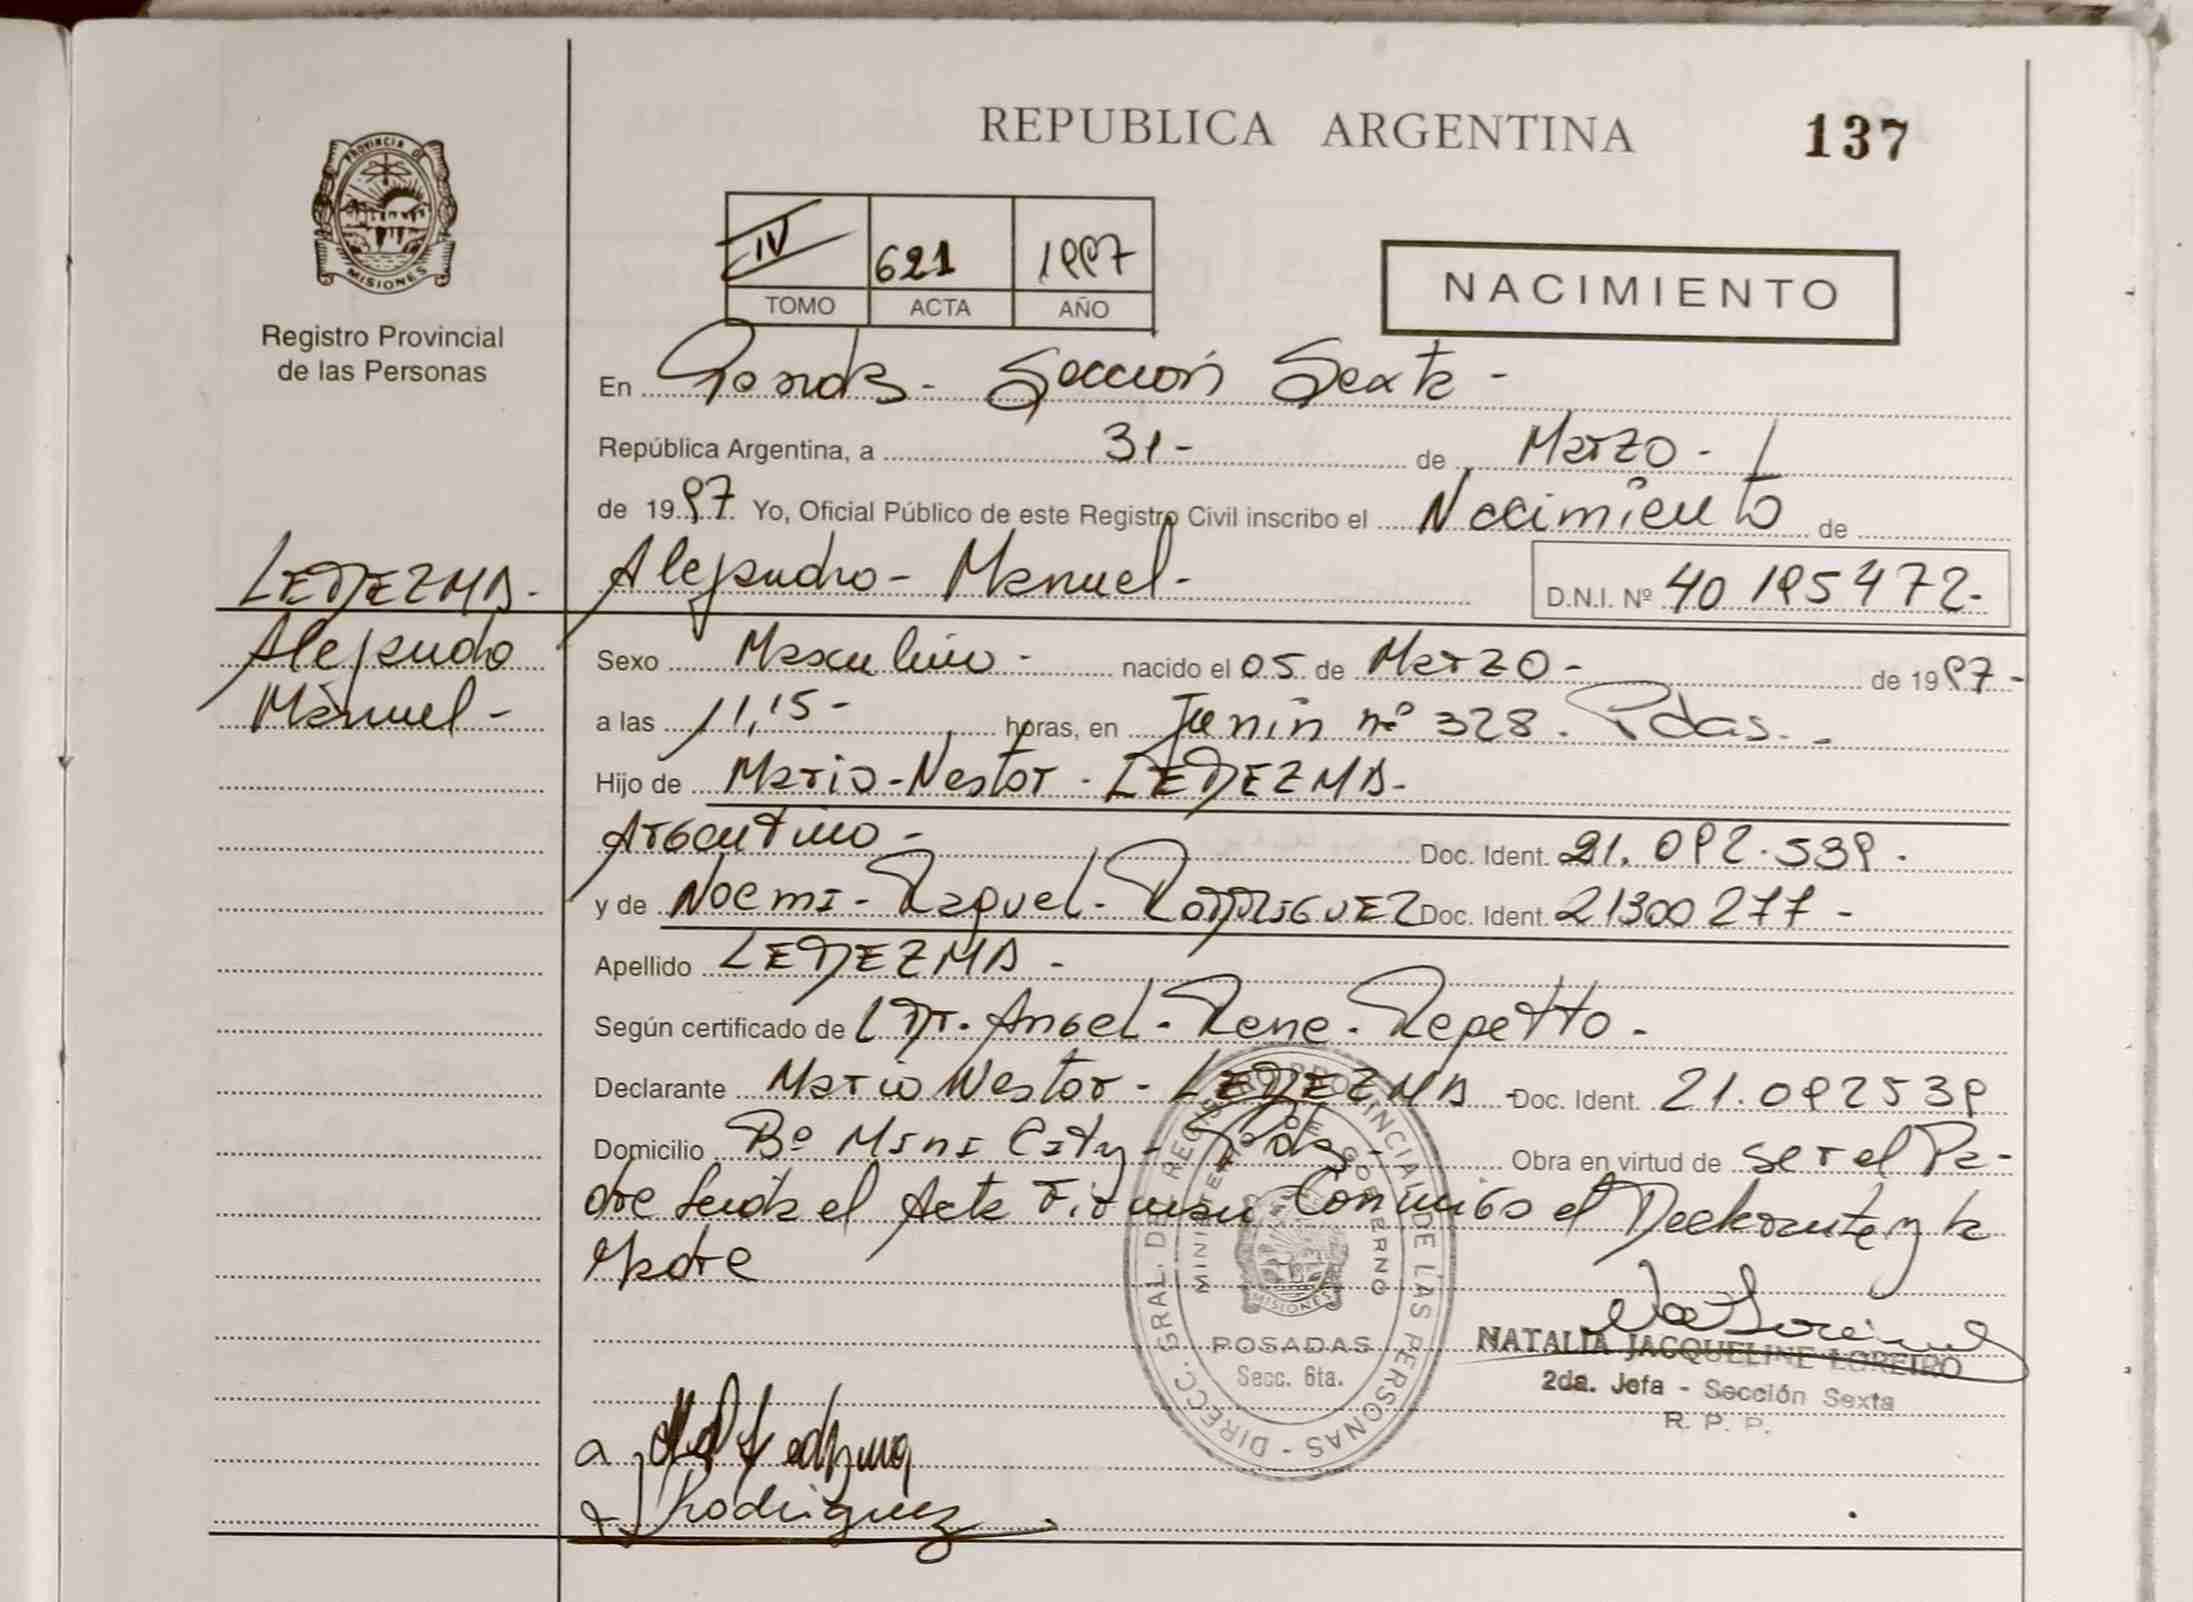 PROVINCIA DE
MISIONES
Registro Provincial
de las Personas
REPUBLICA ARGENTINA 137
IV 621 1997
TOMO ACTA AÑO
NACIMIENTO
En Posadas - Sección Sexta -
República Argentina, a 31 - de Marzo -
de 1997 Yo, Oficial Público de este Registro Civil inscribo el Nacimiento de
LEDEZMA - Alejandro - Manuel - D.N.I. Nº 40 195472 -
Alejandro Sexo Masculino - nacido el 05 de Marzo - de 1997 -
Manuel - a las 11,15 - horas, en Junín nº 328. Pdas. -
Hijo de Mario - Nestor - LEDEZMA -
Argentino - Doc. Ident. 21.092.539.
y de Noemi - Raquel - RODRIGUEZ Doc. Ident. 21300277 -
Apellido LEDEZMA -
Según certificado de Dr. Angel - Rene - Repetto -
Declarante Mario Nestor - LEDEZMA - Doc. Ident. 21.092539
Domicilio Bº Mini City - Pdas - Obra en virtud de ser el Pa-
dre leída el Acta Firman Conmigo el Declarante y la
Madre
DIRECC. GRAL. DE REGISTRO PROVINCIAL DE LAS PERSONAS -
MINISTERIO DE GOBIERNO
MISIONES
POSADAS
Secc. 6ta.
NATALIA JACQUELINE LOREIRO
2da. Jefa - Sección Sexta
R. P. P.
Ledezma
Rodriguez